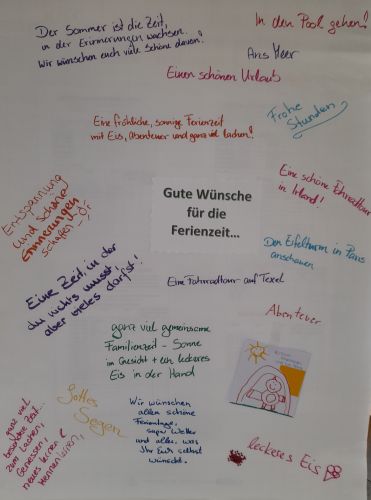 Der Sommer ist die Zeit,
in der Erinnerungen wachsen.
Wir wünschen euch viele schöne davon!
In den Pool gehen!
Ans Meer
Einen schönen Urlaub
Frohe
Stunden
Eine fröhliche, sonnige Ferienzeit
mit Eis, Abenteuer und ganz viel Lachen!
Eine schöne Fahrradtour
in Irland!
Entspannung
und schöne
Erinnerungen
schaffen
Gute Wünsche
für die
Ferienzeit...
Den Eifelturm in Paris
anschauen
Eine Zeit, in der
du nichts musst,
aber vieles darfst!
Eine Fahrradtour auf Texel
Abenteuer
ganz viel gemeinsame
Familienzeit - Sonne
im Gesicht + ein leckeres
Eis in der Hand
Gottes
Segen
Wir wünschen
allen schöne
Ferientage,
super Wetter
und alles, was
Ihr Euch selbst
wünscht.
ganz viel
Zeit...
zum Lachen,
Genießen,
neues lernen &
kennenlernen,
leckeres Eis